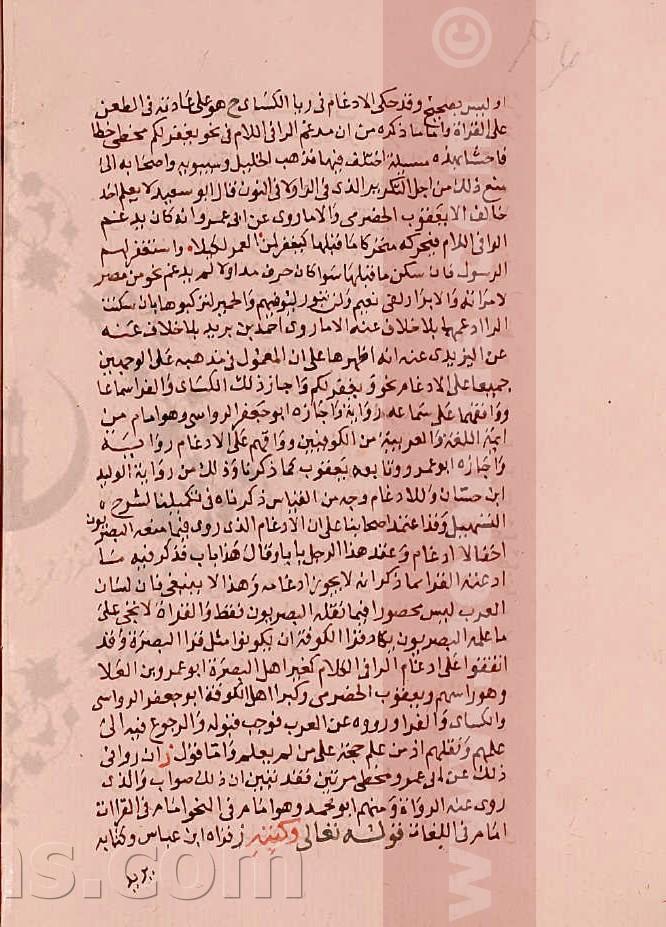 او ليس بصحيح وقد حكى الادغام في ربا الكساى ح هو على عادته في الطعن
على القراة واما ما ذكره من ان مدغم الرا في اللام في نحو يغفر لكم مخطى خطا
فاحشا بهذه مسيلة اختلف فيها فذهب الخليل وسيبويه واصحابه الى
منع ذلك من اجل التكرير الذي في الرا ولا في النون قال ابو سعيد لا يعلم احد
خالف الا يعقوب الحضرمي والا ما روى عن ابي عمرو انه كان يدغم
الرا في اللام فيحركه متحركا ما قبلها كيغفر لمن العمر لكيلا واستغفر لهم
الرسول فان سكن ما قبلها سوا كان حرف مد او لا لم يدغم نحو من مصر
لامراته والابرار لفي نعيم ولن تبور ليوفيهم والحمير لتركبوها بان سكنت
الرا ادغمها بلا خلاف عنه الا ما روى احمد بن بريد بلا خلاف عنه
عن اليزيدي عنه انه اظهرها على ان المعمول في مذهبه على الوجهين
جميعا على الادغام نحو ويغفر لكم واجاز ذلك الكساى والفرا سماعا
ووافقهما على سماعه رواية واجازه ابو جعفر الرواسي وهو امام من
ايمة اللغة والعربية من الكوفيين ووافقهم على الادغام رواية
واجازه ابو عمرو وتابعه يعقوب كما ذكرنا وذلك من رواية الوليد
ابن حسان وللادغام وجه من القياس ذكرناه في تكميلنا لشرح
التسهيل وقد اعتمد اصحابنا على ان الادغام الذي روى فيما منعه البصريون
اخفا لا ادغام وعقد هذا الرجل بابا وقال هذا باب فذكر فيه ما
ادغمته القرا مما ذكر انه لا يجوز ادغامه وهذا لا ينبغي فان لسان
العرب ليس محصورا فيما نقله البصريون فقط والقراة لا تجي على
ما علمه البصريون بكاد قرا الكوفة ان يكونوا مثل قرا البصرة وقد
اتفقوا على ادغام الرا في اللام كبير اهل البصرة ابو عمرو بن العلا
وهو راسهم ويعقوب الحضرمي وكبرا اهل الكوفة ابو جعفر الرواسي
والكساى والفرا ورووه عن العرب فوجب قبوله والرجوع فيه الى
علمهم ونقلهم اذ من علم حجة على من لم يعلم واما قول ز ان راوي
ذلك عن ابي عمرو مخطى مرتين فقد تبين ان ذلك صواب والذي
روى عنه الرواة ومنهم ابو محمد وهو امام في النحو امام في القراات
امام في اللغات قوله تعالى وكتبه زقراه ابن عباس وكتابه
يريد
ns.com
© www